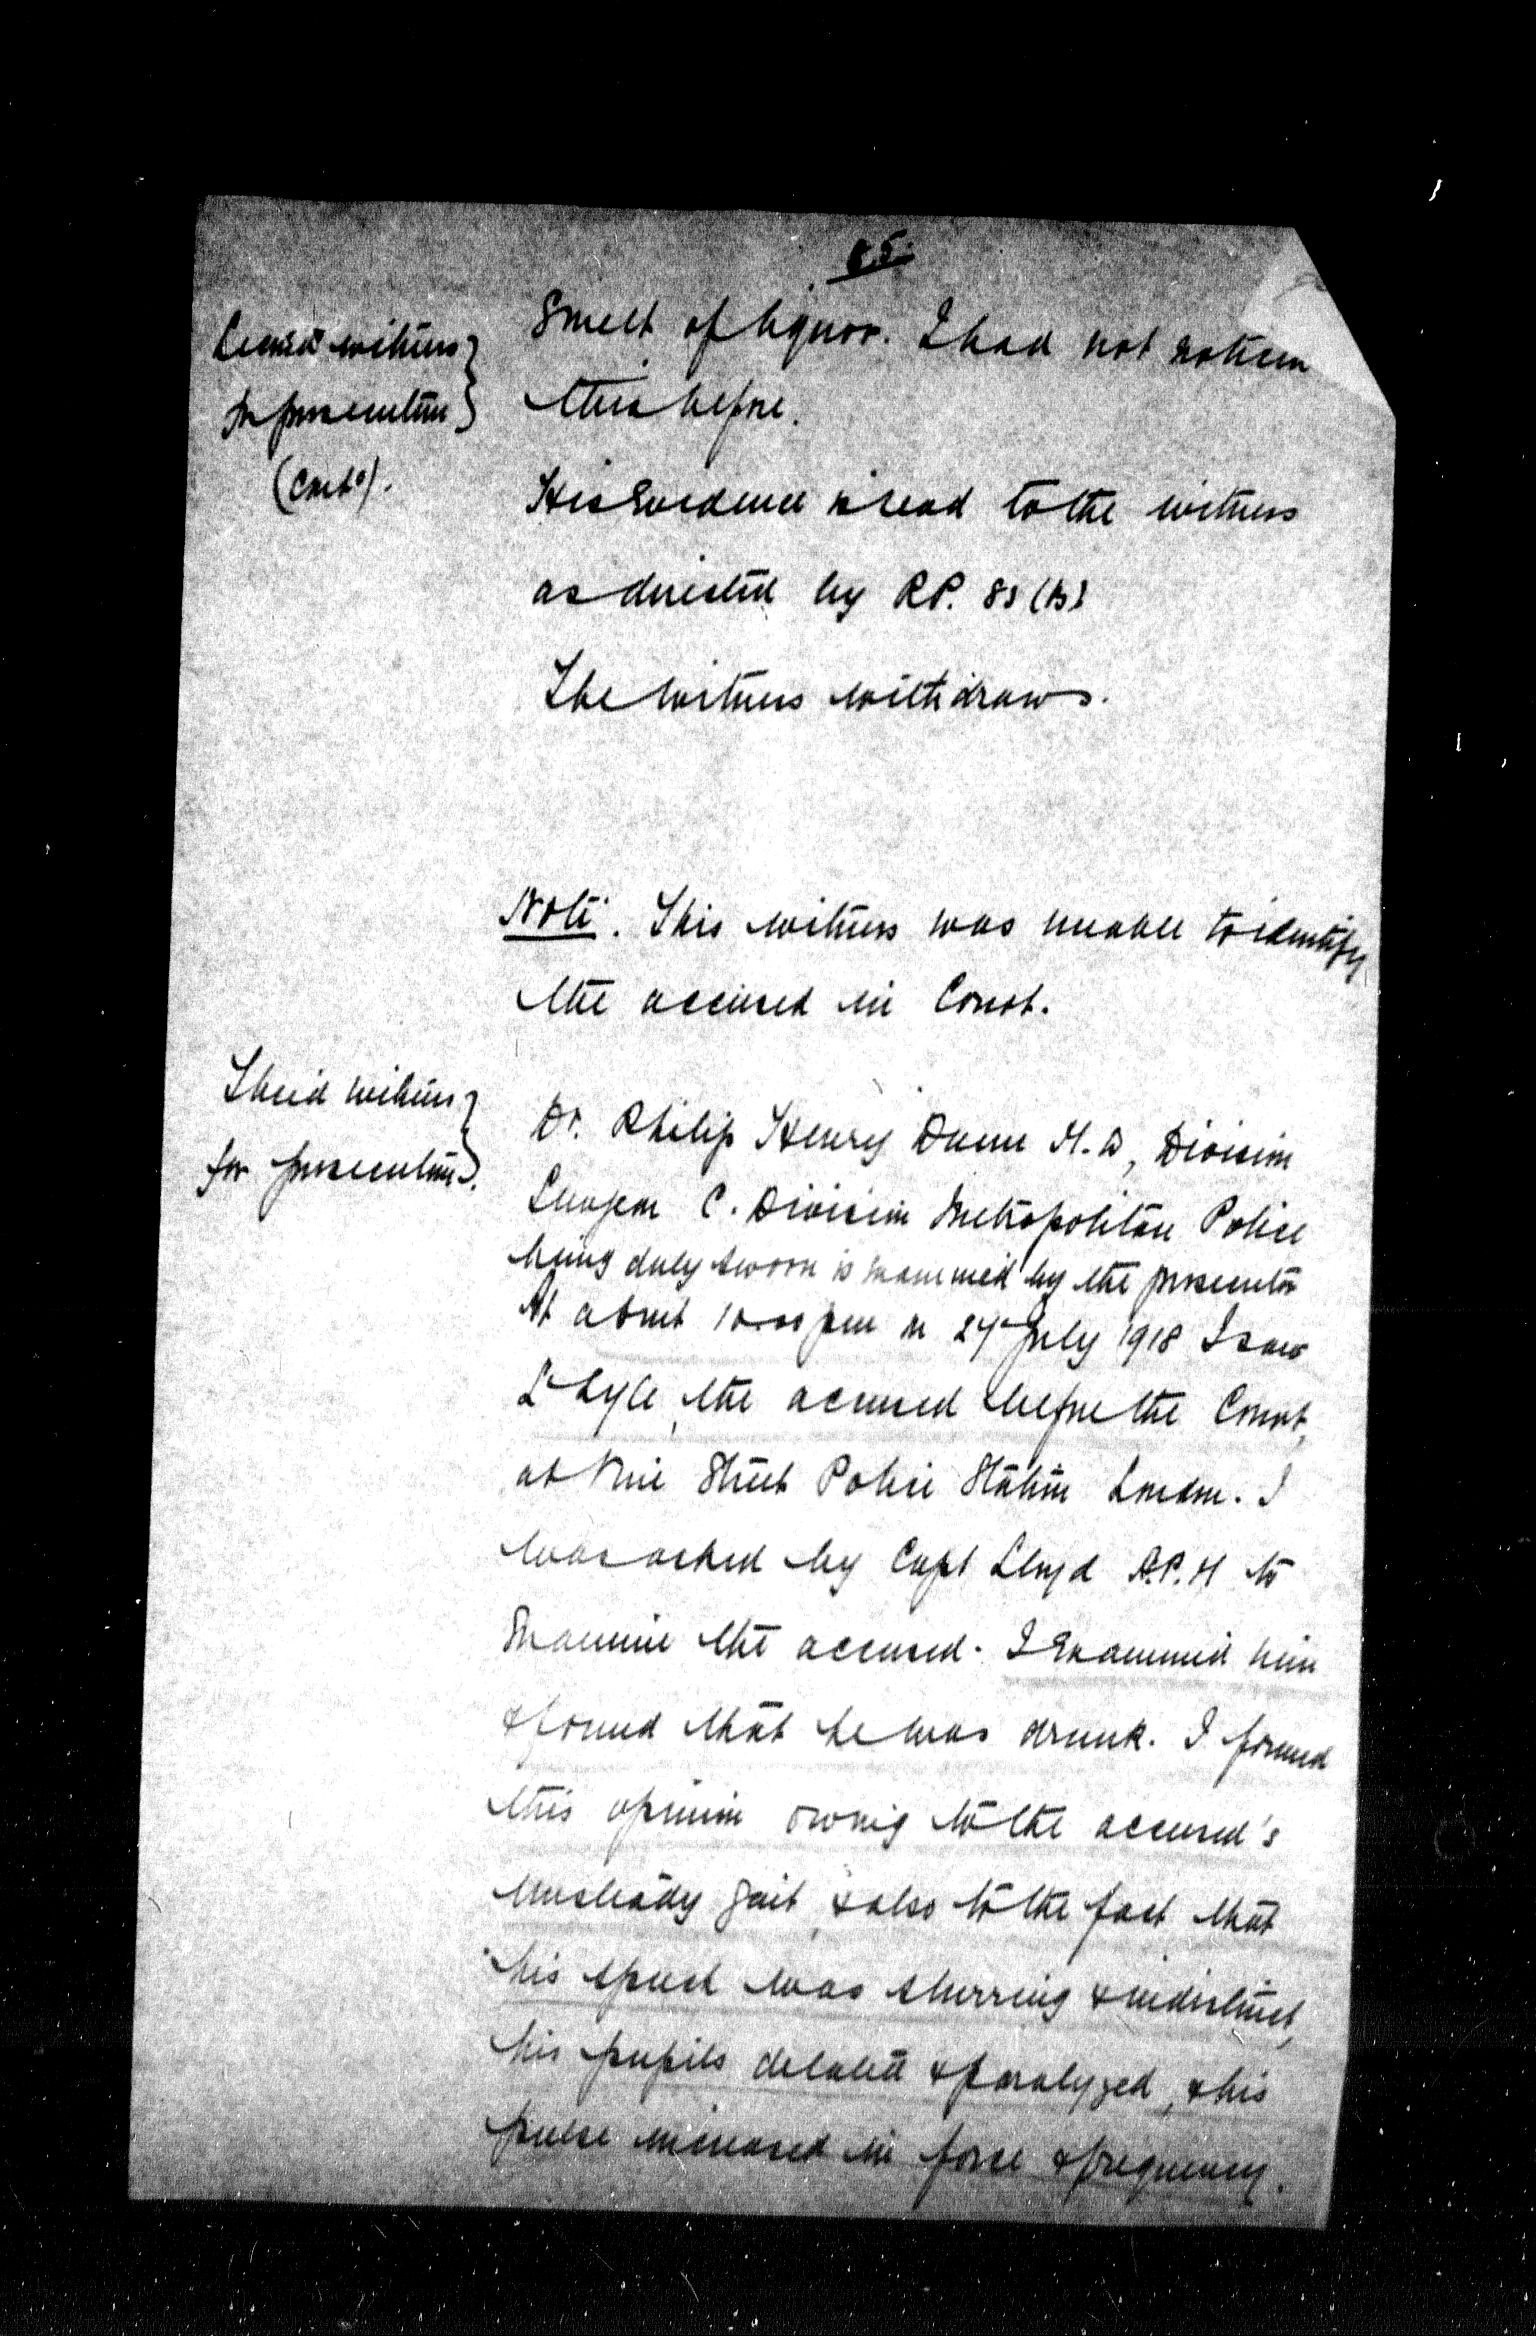 85.
Second witness
for prosecution
(contd).
Smelt of liquor. I had not noticed
this before.
His Evidence is read to the witness
as directed by R.P. 83 (B)
The witness withdraws.
Note. This witness was unable to identify
the accused in Court.
Third witness
for prosecution.
Dr. Philip Henry Dunn M.D, Division
Surgeon C. Division Metropolitan Police
being duly sworn is examined by the prosecutor
At about 10.00 pm on July 1918 I saw
Lt Lyle, the accused before the Court,
at Vine Street Police Station London. I
was asked by Capt Lloyd A.P.M to
Examine the accused. I Examined him
& found that he was drunk. I formed
this opinion owing to the accused's
unsteady gait, & also to the fact that
his speech was slurring & indistinct,
his pupils dilated & paralyzed, & his
pulse increased in force & frequency.